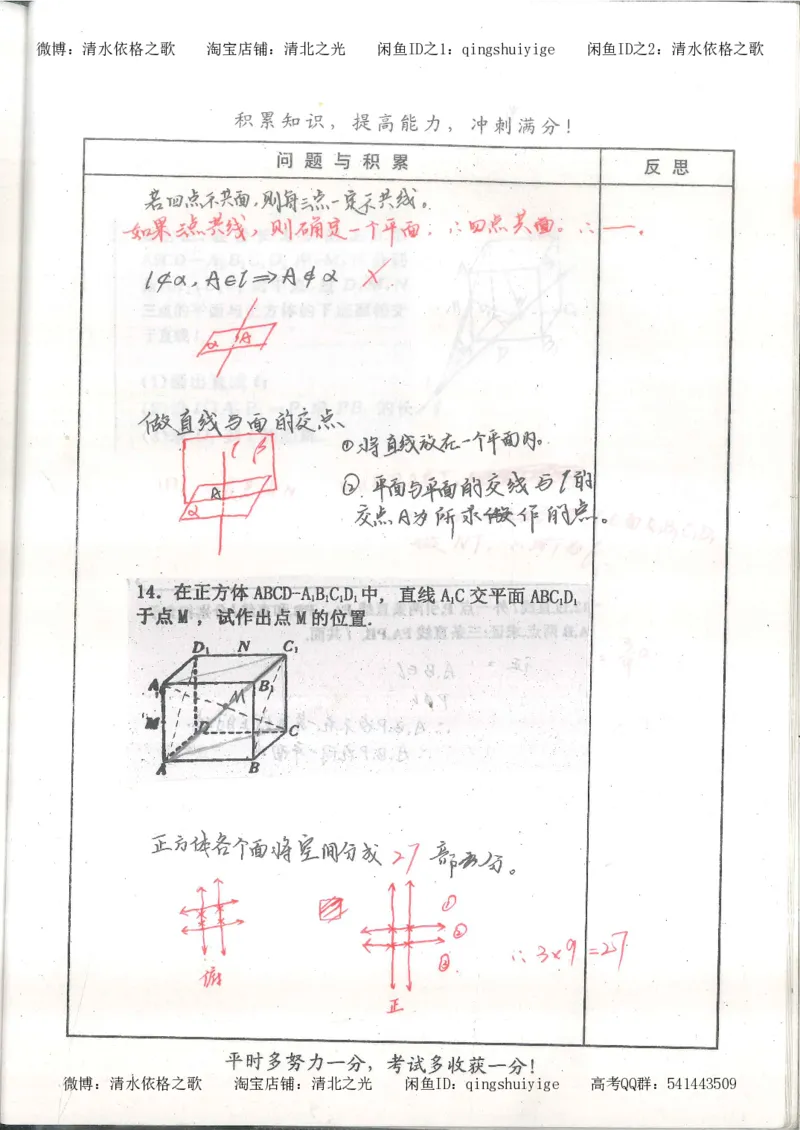 微博：清水依格之歌 淘宝店铺：清北之光 闲鱼ID之1：qingshuiyige 闲鱼ID之2：清水依格之歌
积累知识，提高能力，冲刺满分！
问题与积累 反思
若四点不共面，则每三点一定不共线。
如果三点共线，则确定一个平面；∴四点共面。∴ —.
l⊄α, A∈l⇒A∉α ✗
α A
做直线与面的交点
l β
A
α
①将直线放在一个平面内。
②.平面与平面的交线与l的
交点A为所求做作的点。
14. 在正方体 ABCD-A₁B₁C₁D₁中，直线 A₁C 交平面 ABC₁D₁
于点 M ，试作出点 M 的位置.
D₁ N C₁
A₁ B₁
M M
D C
A B
正方体各个面将空间分成 27 部分。
①
②
③
∴3×9=27
俯
正
平时多努力一分，考试多收获一分！
微博：清水依格之歌 淘宝店铺：清北之光 闲鱼ID：qingshuiyige 高考QQ群：541443509